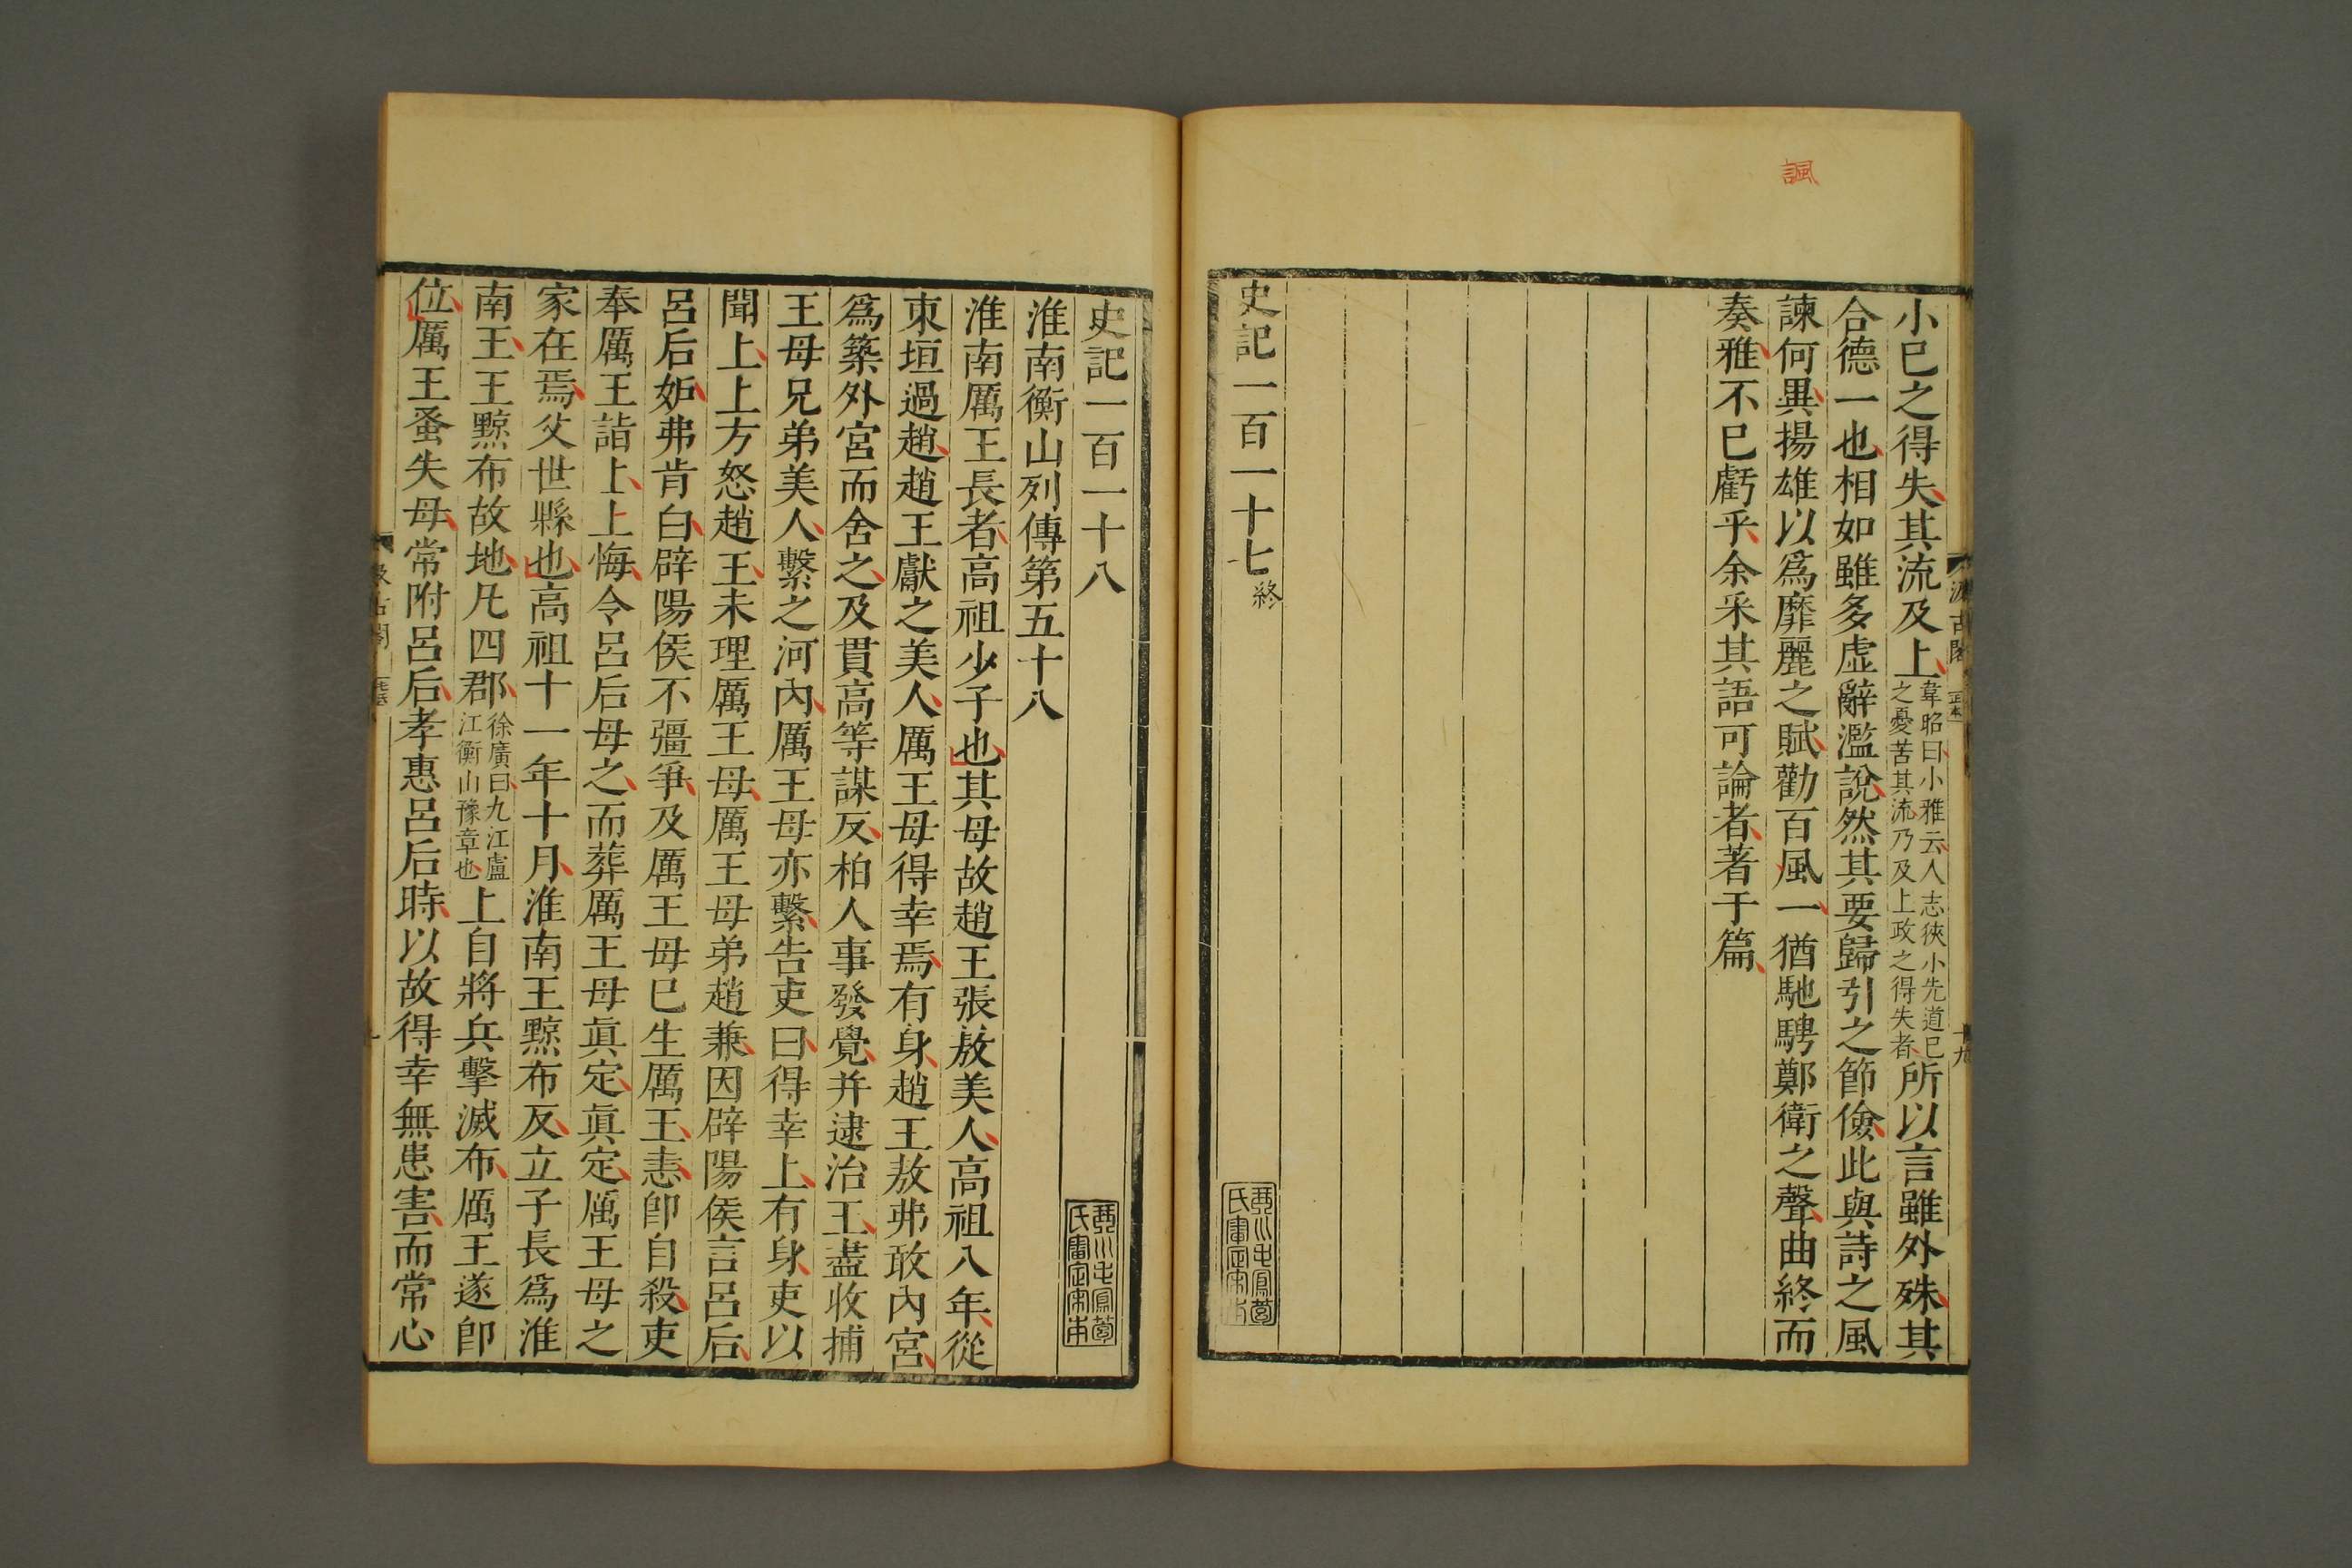 諷
小已之得失其流及上韋昭曰小雅云人志狹小先道已之憂苦其流乃及上政之得失者所以言雖外殊其
合德一也相如雖多虛辭濫說然其要歸引之節儉此與詩之風
諫何異揚雄以爲靡麗之賦勸百風一猶馳騁鄭衛之聲曲終而
奏雅不已虧乎余采其語可論者著于篇
史記一百一十七終
史記一百一十八
淮南衡山列傳第五十八
淮南厲王長者高祖少子也其母故趙王張敖美人高祖八年從
東垣過趙趙王獻之美人厲王母得幸焉有身趙王敖弗敢內宮
爲築外宮而舍之及貫高等謀反柏人事發覺并逮治王盡收捕
王母兄弟美人繫之河內厲王母亦繫告吏曰得幸上有身吏以
聞上上方怒趙王未理厲王母厲王母弟趙兼因辟陽侯言呂后
呂后妬弗肯白辟陽侯不彊爭及厲王母已生厲王恚卽自殺吏
奉厲王詣上上悔令呂后母之而葬厲王母眞定眞定厲王母之
家在焉父世縣也高祖十一年十月淮南王黥布反立子長爲淮
南王王黥布故地凡四郡徐廣曰九江廬江衡山豫章也上自將兵擊滅布厲王遂卽
位厲王蚤失母常附呂后孝惠呂后時以故得幸無患害而常心